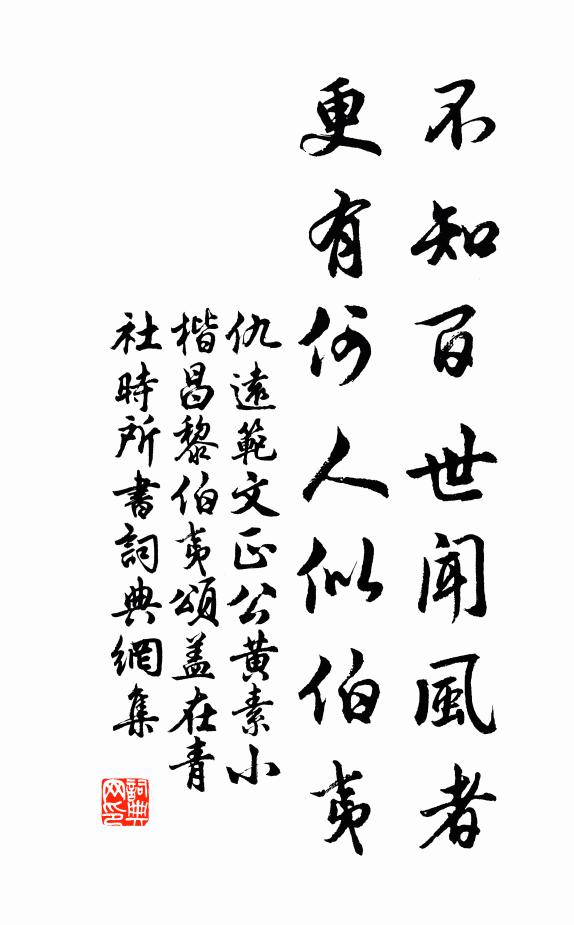 不知百世聞風者
更有何人似伯夷
仇遠範文正公黄素小
楷昌黎伯夷頌盖在青
社時所書詞典網集
詞典网印